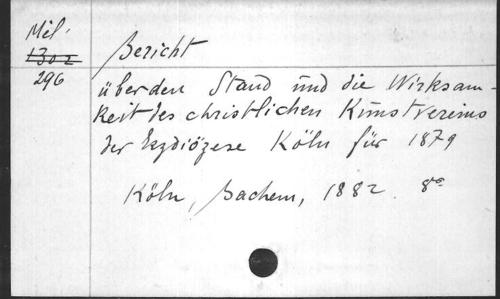 Mil.
1302
296
Bericht
über den Stand und die Wirksam-
keit des christlichen Kunstvereins
der Erzdiözese Köln für 1879
Köln, Bachem, 1882. 8°